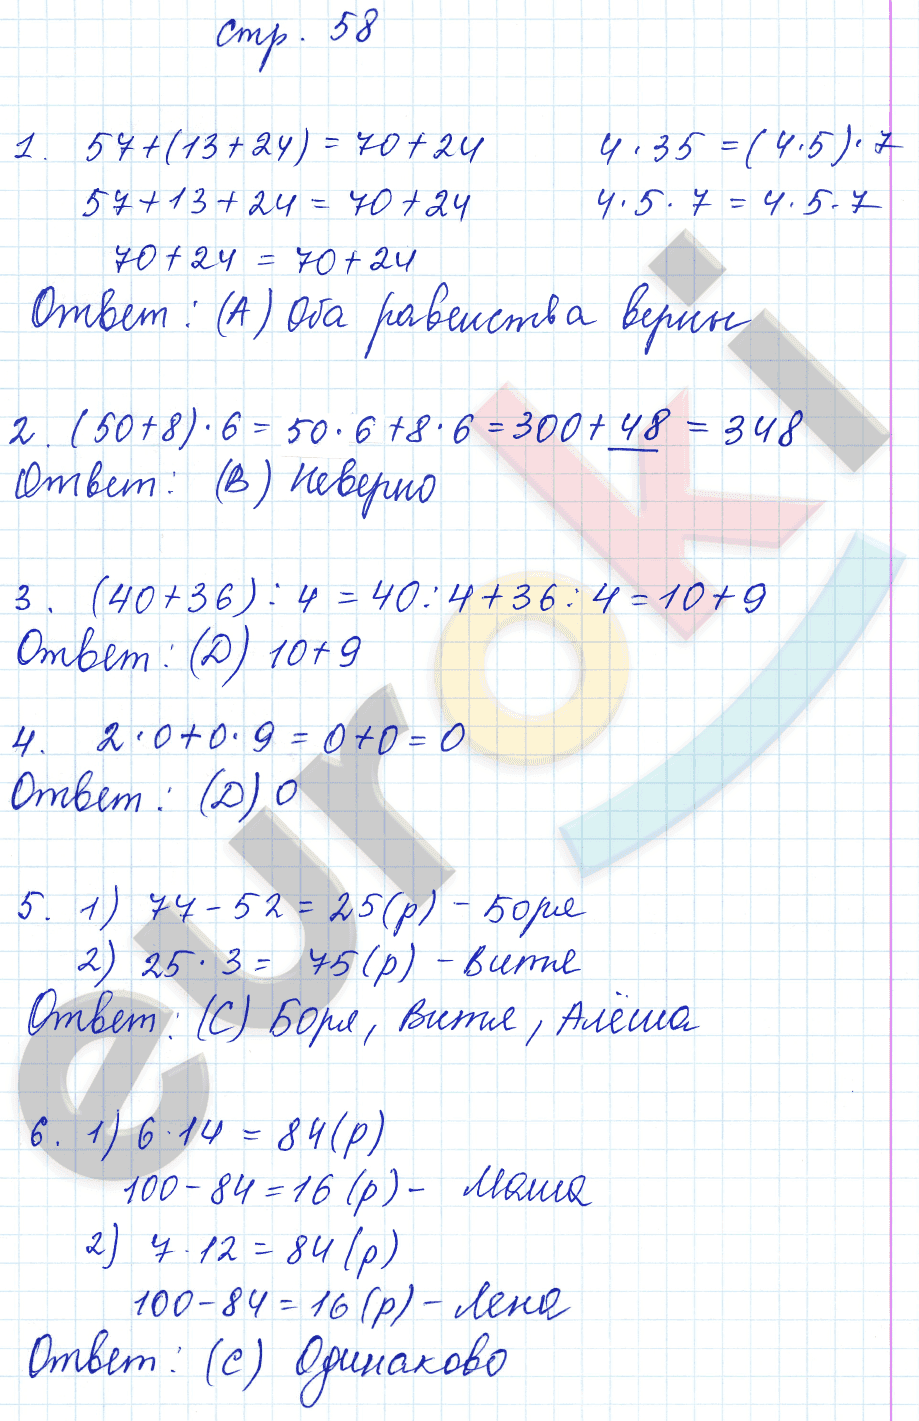 стр. 58
1. 57+(13+24) = 70+24
57+13+24 = 70+24
70+24 = 70+24
4·35 = (4·5)·7
4·5·7 = 4·5·7
Ответ: (А) Оба равенства верны
2. (50+8)·6 = 50·6+8·6 = 300+48 = 348
Ответ: (В) Неверно
3. (40+36):4 = 40:4+36:4 = 10+9
Ответ: (D) 10+9
4. 2·0+0·9 = 0+0 = 0
Ответ: (D) 0
5. 1) 77-52 = 25(р) - Боря
2) 25·3 = 75(р) - Витя
Ответ: (С) Боря, Витя, Алёша
6. 1) 6·14 = 84(р)
100-84 = 16(р) - Маша
2) 7·12 = 84(р)
100-84 = 16(р) - Лена
Ответ: (С) Одинаково
euroki